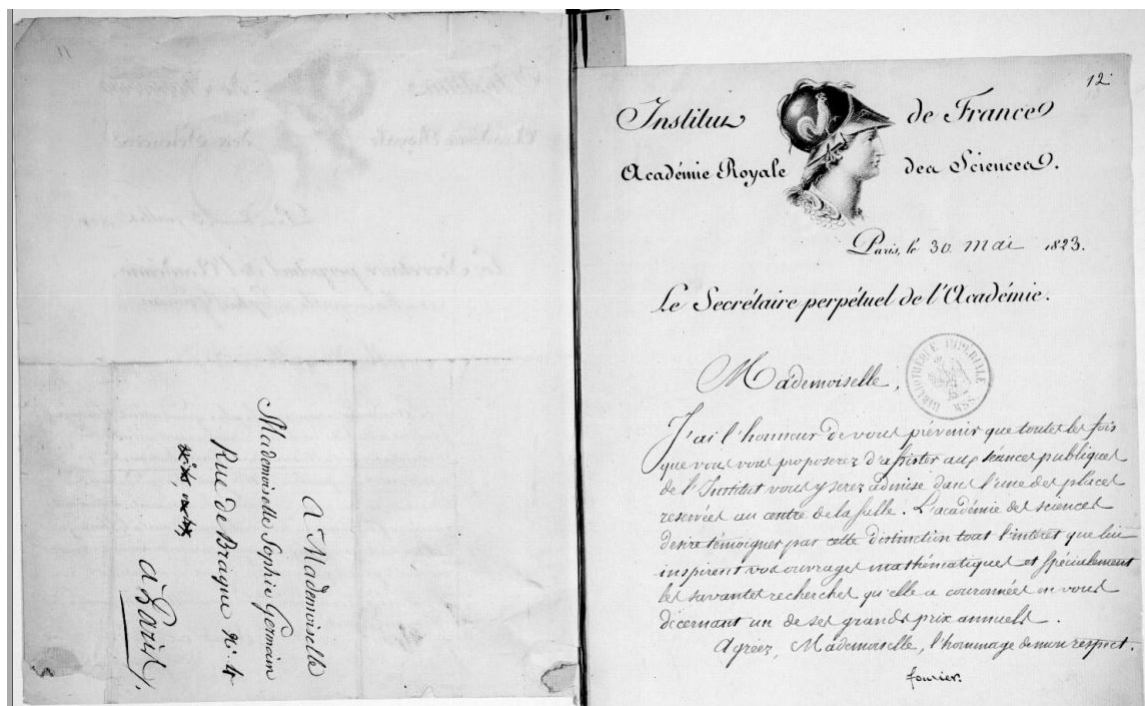 11
A Mademoiselle
Mademoiselle Sophie Germain
Rue de Braque N.º 4
à Paris,
12
Institut de France
Académie Royale des Sciences.
Paris, le 30 mai 1823.
Le Secrétaire perpétuel de l'Académie.
BIBLIOTHEQUE IMPERIALE MSS
Mademoiselle,
J'ai l'honneur de vous prévenir que toutes les fois
que vous vous proposerez d'assister aux séances publiques
de l'Institut vous y serez admise dans l'une des places
reservées au centre de la salle. L'académie des sciences
desire témoigner par cette distinction tout l'interet que lui
inspirent vos ouvrages mathématiques et spécialement
les savantes recherches qu'elle a couronnées en vous
décernant un de ses grands prix annuels.
Agréez, Mademoiselle, l'hommage de mon respect.
fourier.